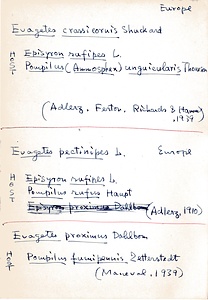 Europe
Evagetes crassicornis Shuckard
HOST
Episyron rufipes L.
Pompilus (Ammosphex) unguicularis Thomson
(Adlerz, Ferton, Richards & Hamm, 1939
Evagetes pectinipes L. Europe
HOST
Episyron rufipes L.
Pompilus rufus Haupt
Episyron proximus Dahlbom (Adlerz, 1910)
Evagetes proximus Dahlbom
HOST
Pompilus fumipennis Zetterstedt
(Maneval, 1939)